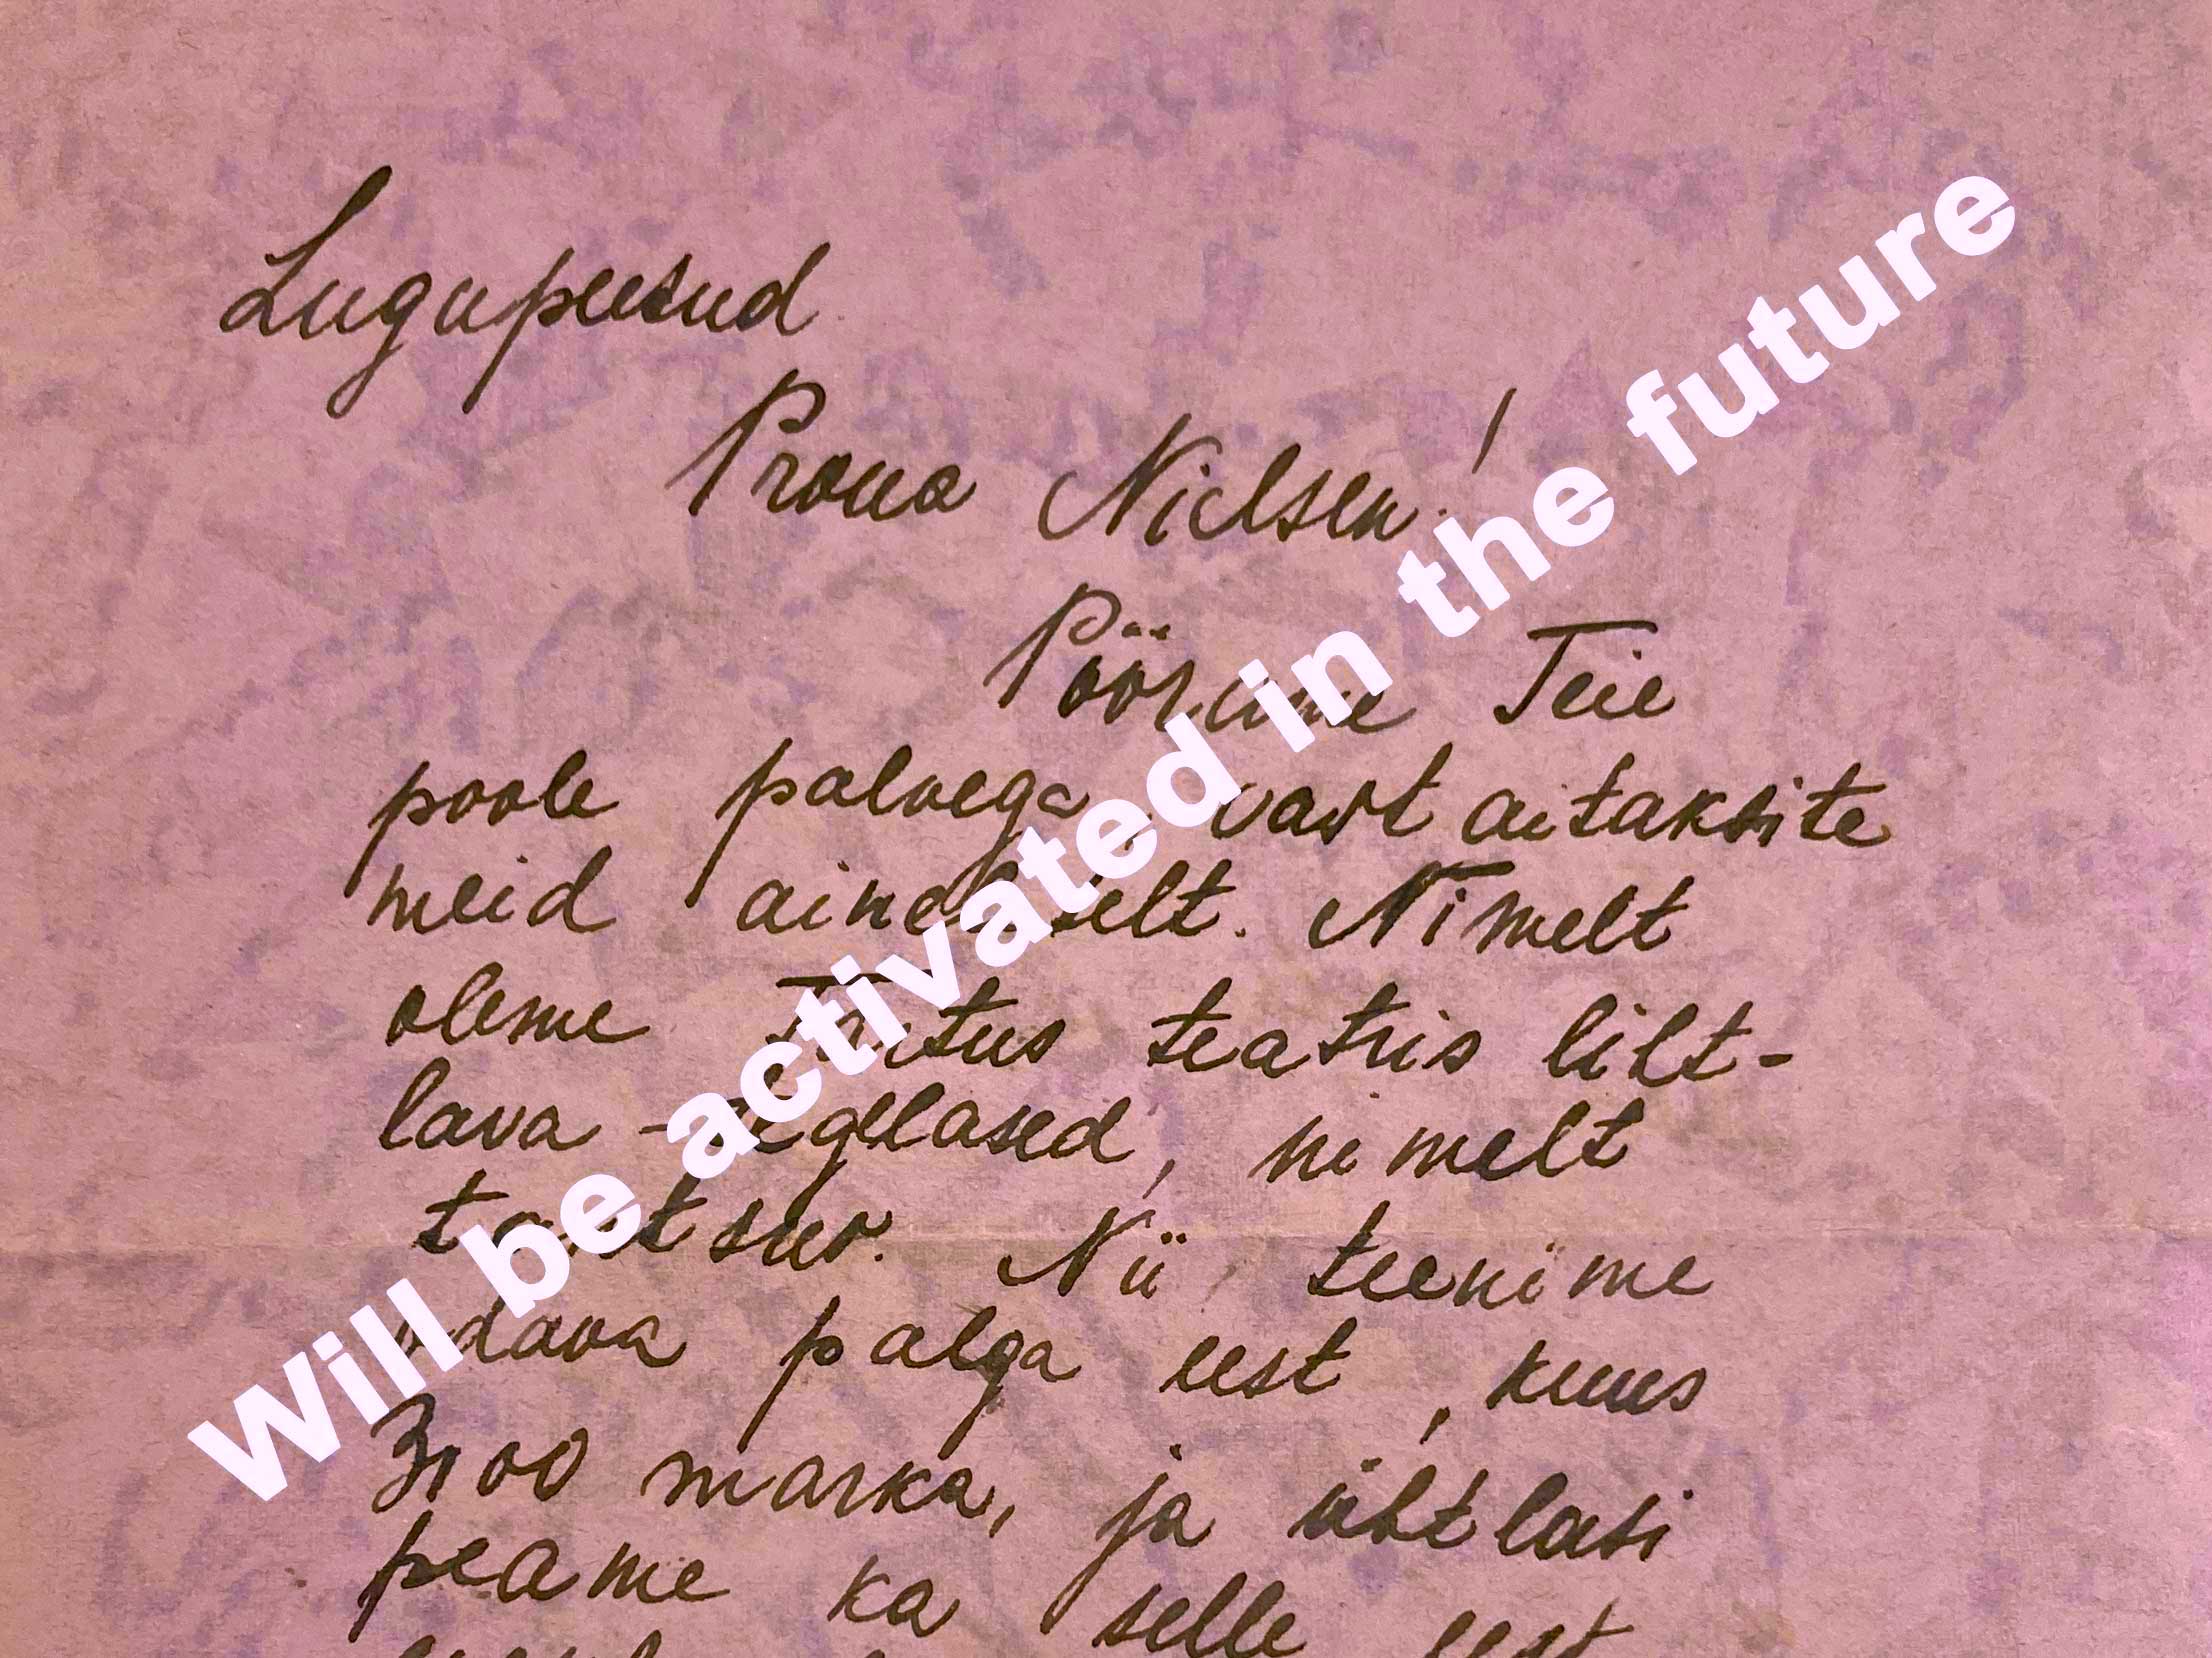 Lugupeetud
Proua Nielsen!
Pöörame Teie
poole palvega, vast aitaksite
meid aineliselt. Nimelt
oleme Tartus teatris liht-
lava-tegelased, nimelt
tantsur. Nii teenime
odava palga eest, kuus
3100 marka, ja ühtlasi
peame ka selle eest
Will be activated in the future